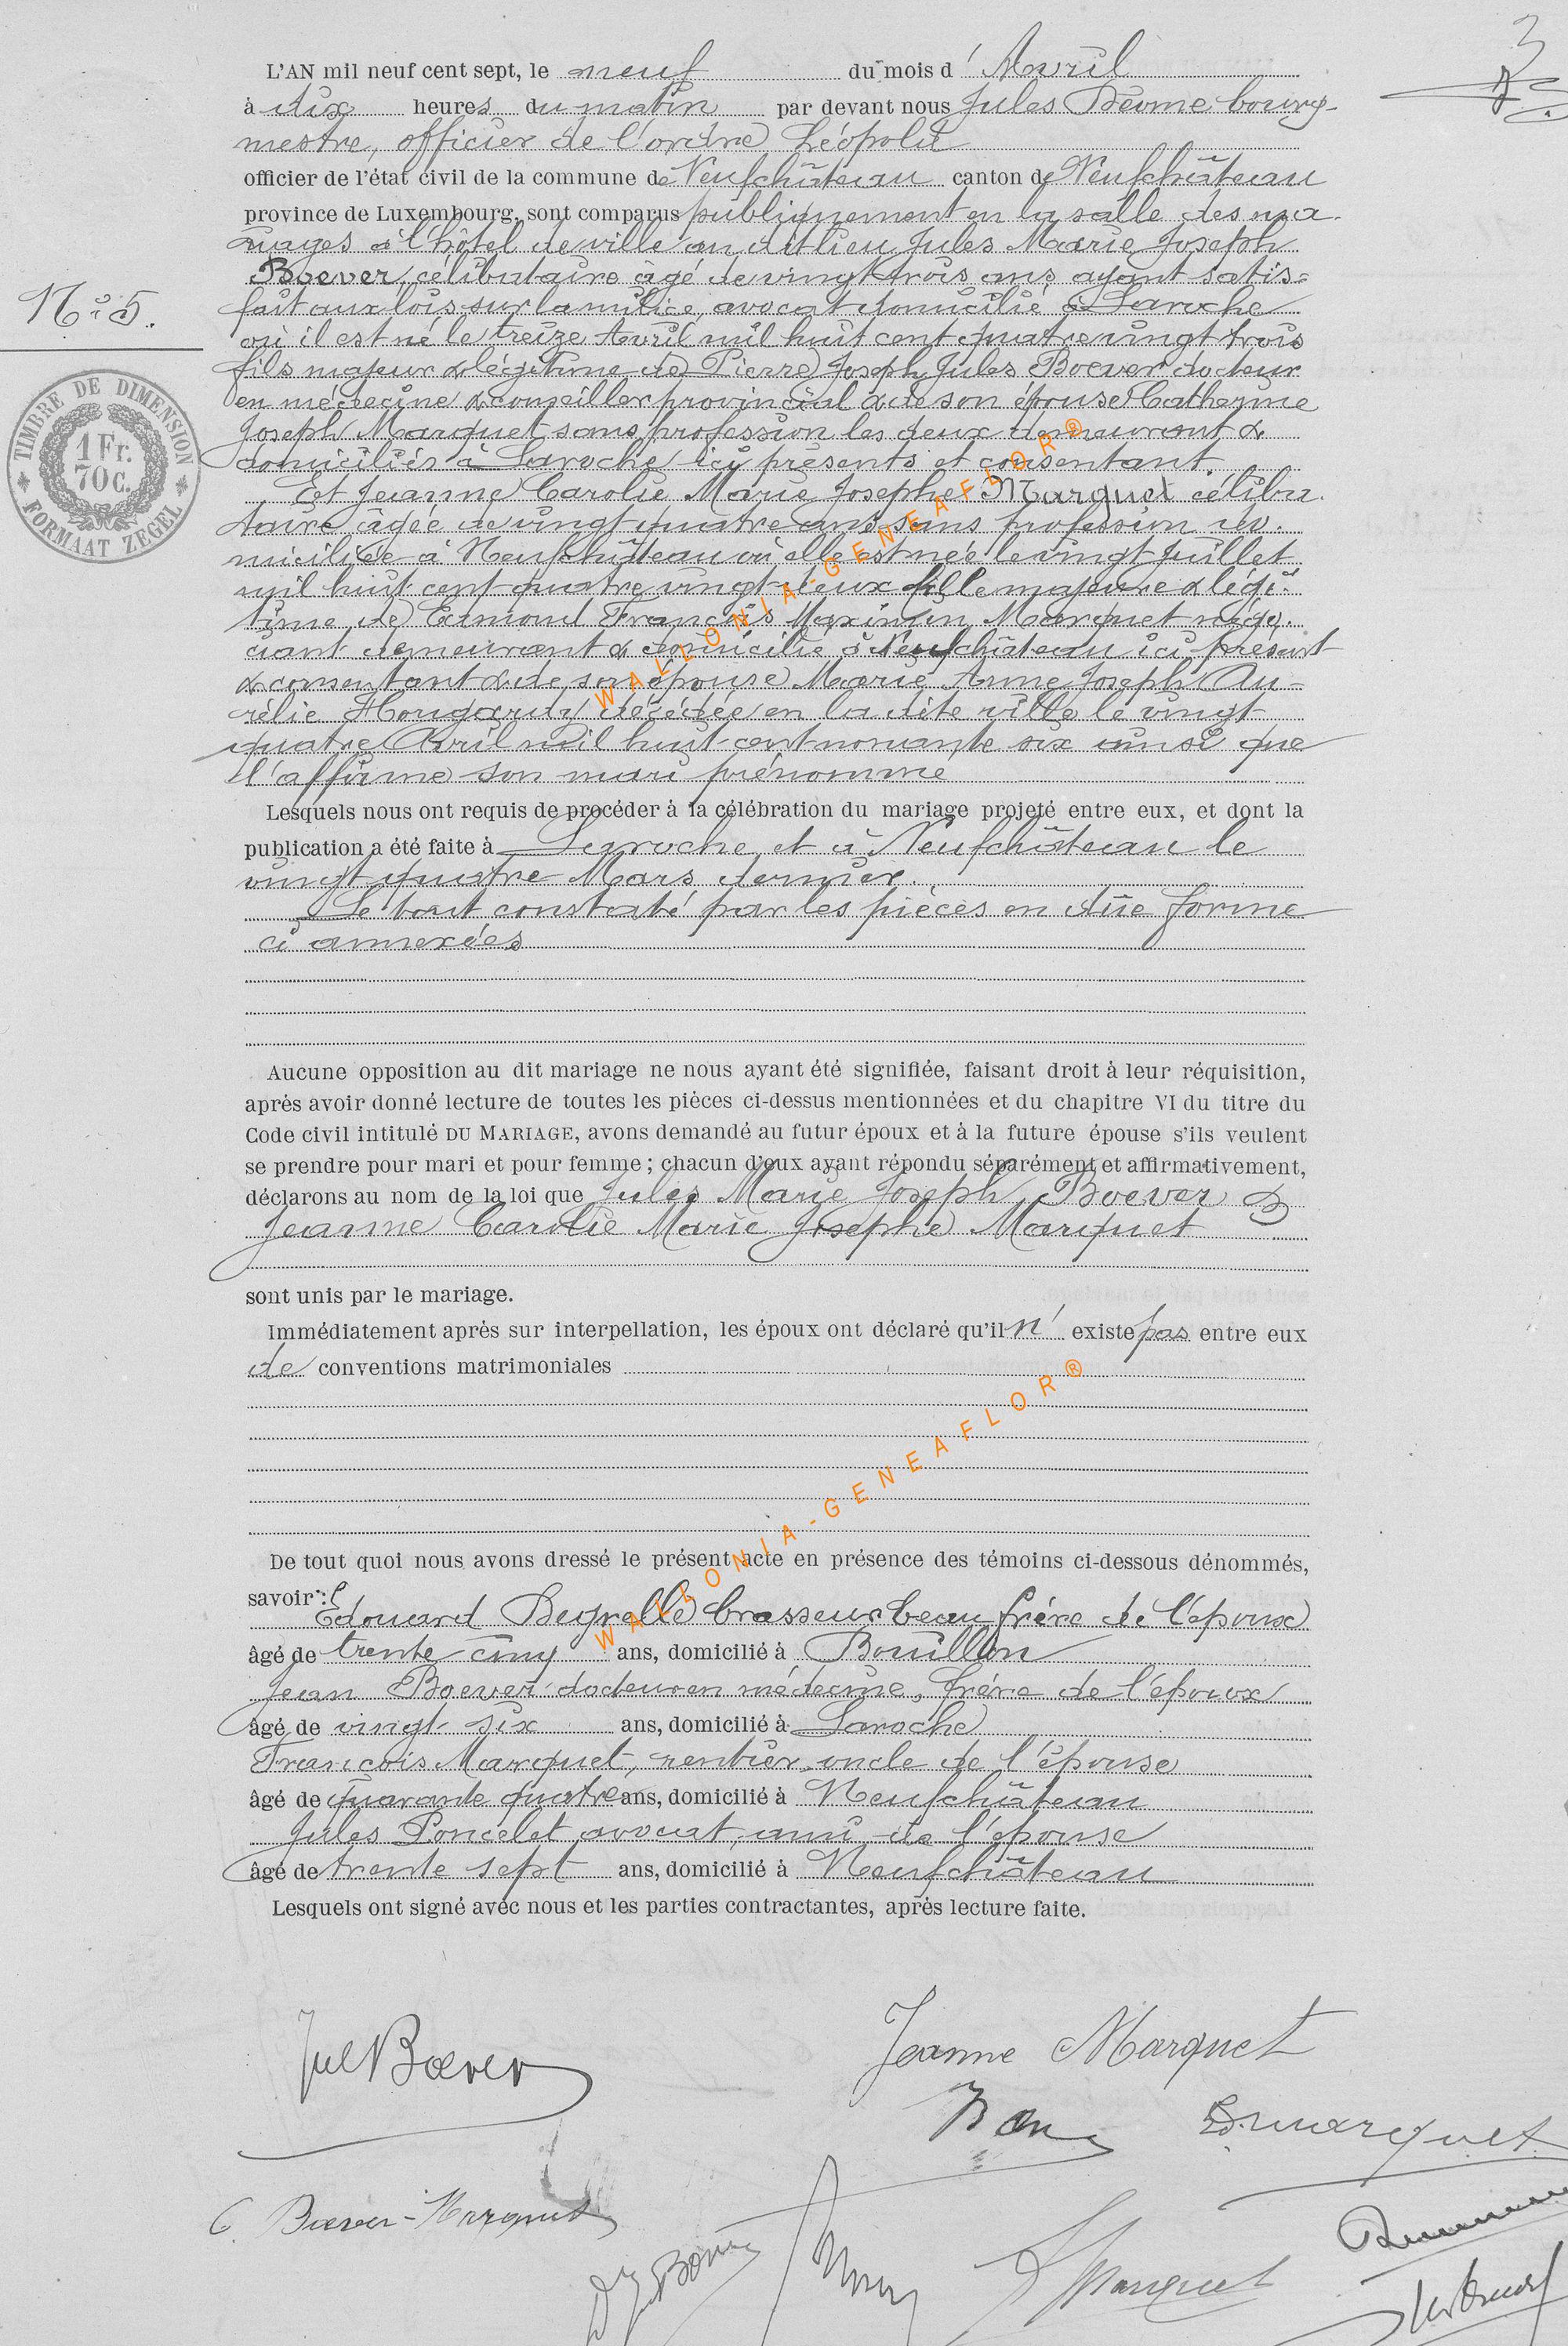 3
L'AN mil neuf cent sept, le neuf du mois d'Avril
à dix heures du matin par devant nous Jules Déome bourg-
mestre, officier de l'ordre Léopold
officier de l'état civil de la commune de Neufchâteau canton de Neufchâteau
province de Luxembourg, sont comparus publiquement en la salle des ma-
riages à l'hôtel de ville au dit lieu Jules Marie Joseph
Boever, célibataire âgé de vingt trois ans, ayant satis=
fait aux lois sur la milice, avocat domicilié à Laroche
N° 5.
où il est né le treize Avril mil huit cent quatre vingt trois
fils majeur & légitime de Pierre Joseph Jules Boever docteur
en médecine & conseiller provincial & de son épouse Catherine
Joseph Marquet sans profession les deux demeurant &
domiciliés à Laroche ici présents et consentant.
TIMBRE DE DIMENSION
1 Fr.
70 c.
FORMAAT ZEGEL
Et Jeanne Carolie Marie Josephe Marquet céliba-
taire âgée de vingt quatre ans, sans profession do-
miciliée à Neufchâteau où elle est née le vingt Juillet
mil huit cent quatre vingt-deux fille majeure & légi-
time de Edmond François Maximin Marquet négo-
ciant demeurant & domicilié à Neufchâteau ici présent
& consentant & de son épouse Marie Anne Joseph Au-
rélie Hougardy décédée en la dite ville le vingt
quatre Avril mil huit-cent nonante six ainsi que
l'affirme son mari prénommé
Lesquels nous ont requis de procéder à la célébration du mariage projeté entre eux, et dont la
publication a été faite à Laroche et à Neufchâteau le
vingt quatre Mars dernier.
Le tout constaté par les pièces en dûe forme
ci annexées
WALLONIA-GENEAFLOR®
Aucune opposition au dit mariage ne nous ayant été signifiée, faisant droit à leur réquisition,
après avoir donné lecture de toutes les pièces ci-dessus mentionnées et du chapitre VI du titre du
Code civil intitulé DU MARIAGE, avons demandé au futur époux et à la future épouse s'ils veulent
se prendre pour mari et pour femme ; chacun d'eux ayant répondu séparément et affirmativement,
déclarons au nom de la loi que Jules Marie Joseph Boever &
Jeanne Carolie Marie Josephe Marquet
sont unis par le mariage.
Immédiatement après sur interpellation, les époux ont déclaré qu'il n' existe pas entre eux
de conventions matrimoniales
WALLONIA-GENEAFLOR®
De tout quoi nous avons dressé le présent acte en présence des témoins ci-dessous dénommés,
savoir :
Edouard Degrelle brasseur beau frère de l'époux
âgé de trente cinq ans, domicilié à Bouillon
Jean Boever docteur en médecine, frère de l'époux
âgé de vingt-six ans, domicilié à Laroche
François Marquet, rentier, oncle de l'épouse
âgé de quarante quatre ans, domicilié à Neufchâteau
Jules Poncelet avocat, ami de l'épouse
âgé de trente sept ans, domicilié à Neufchâteau
Lesquels ont signé avec nous et les parties contractantes, après lecture faite.
Jul Boever
Jeanne Marquet
Ed Marquet
C. Boever-Marquet
Dr J Boever
F Marquet